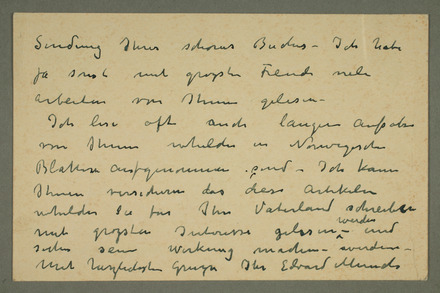 Sendung Ihres schönes Buches – Ich habe
ja sonst mit grosster Freude viele
arbeiten von Ihnen gelesen –
Ich lese oft auch langere aufsatze
von Ihnen welche in Norwegische
Blattern aufgenommen sind – Ich kann
Ihnen versichern das diese Artikeln
welche Sie fur Ihr Vaterland schreiben
mit grosster Interesse gelesen werden – und
seine Wirkung machen –
Mit herzlichsten Gruss Ihr Edvard Munch